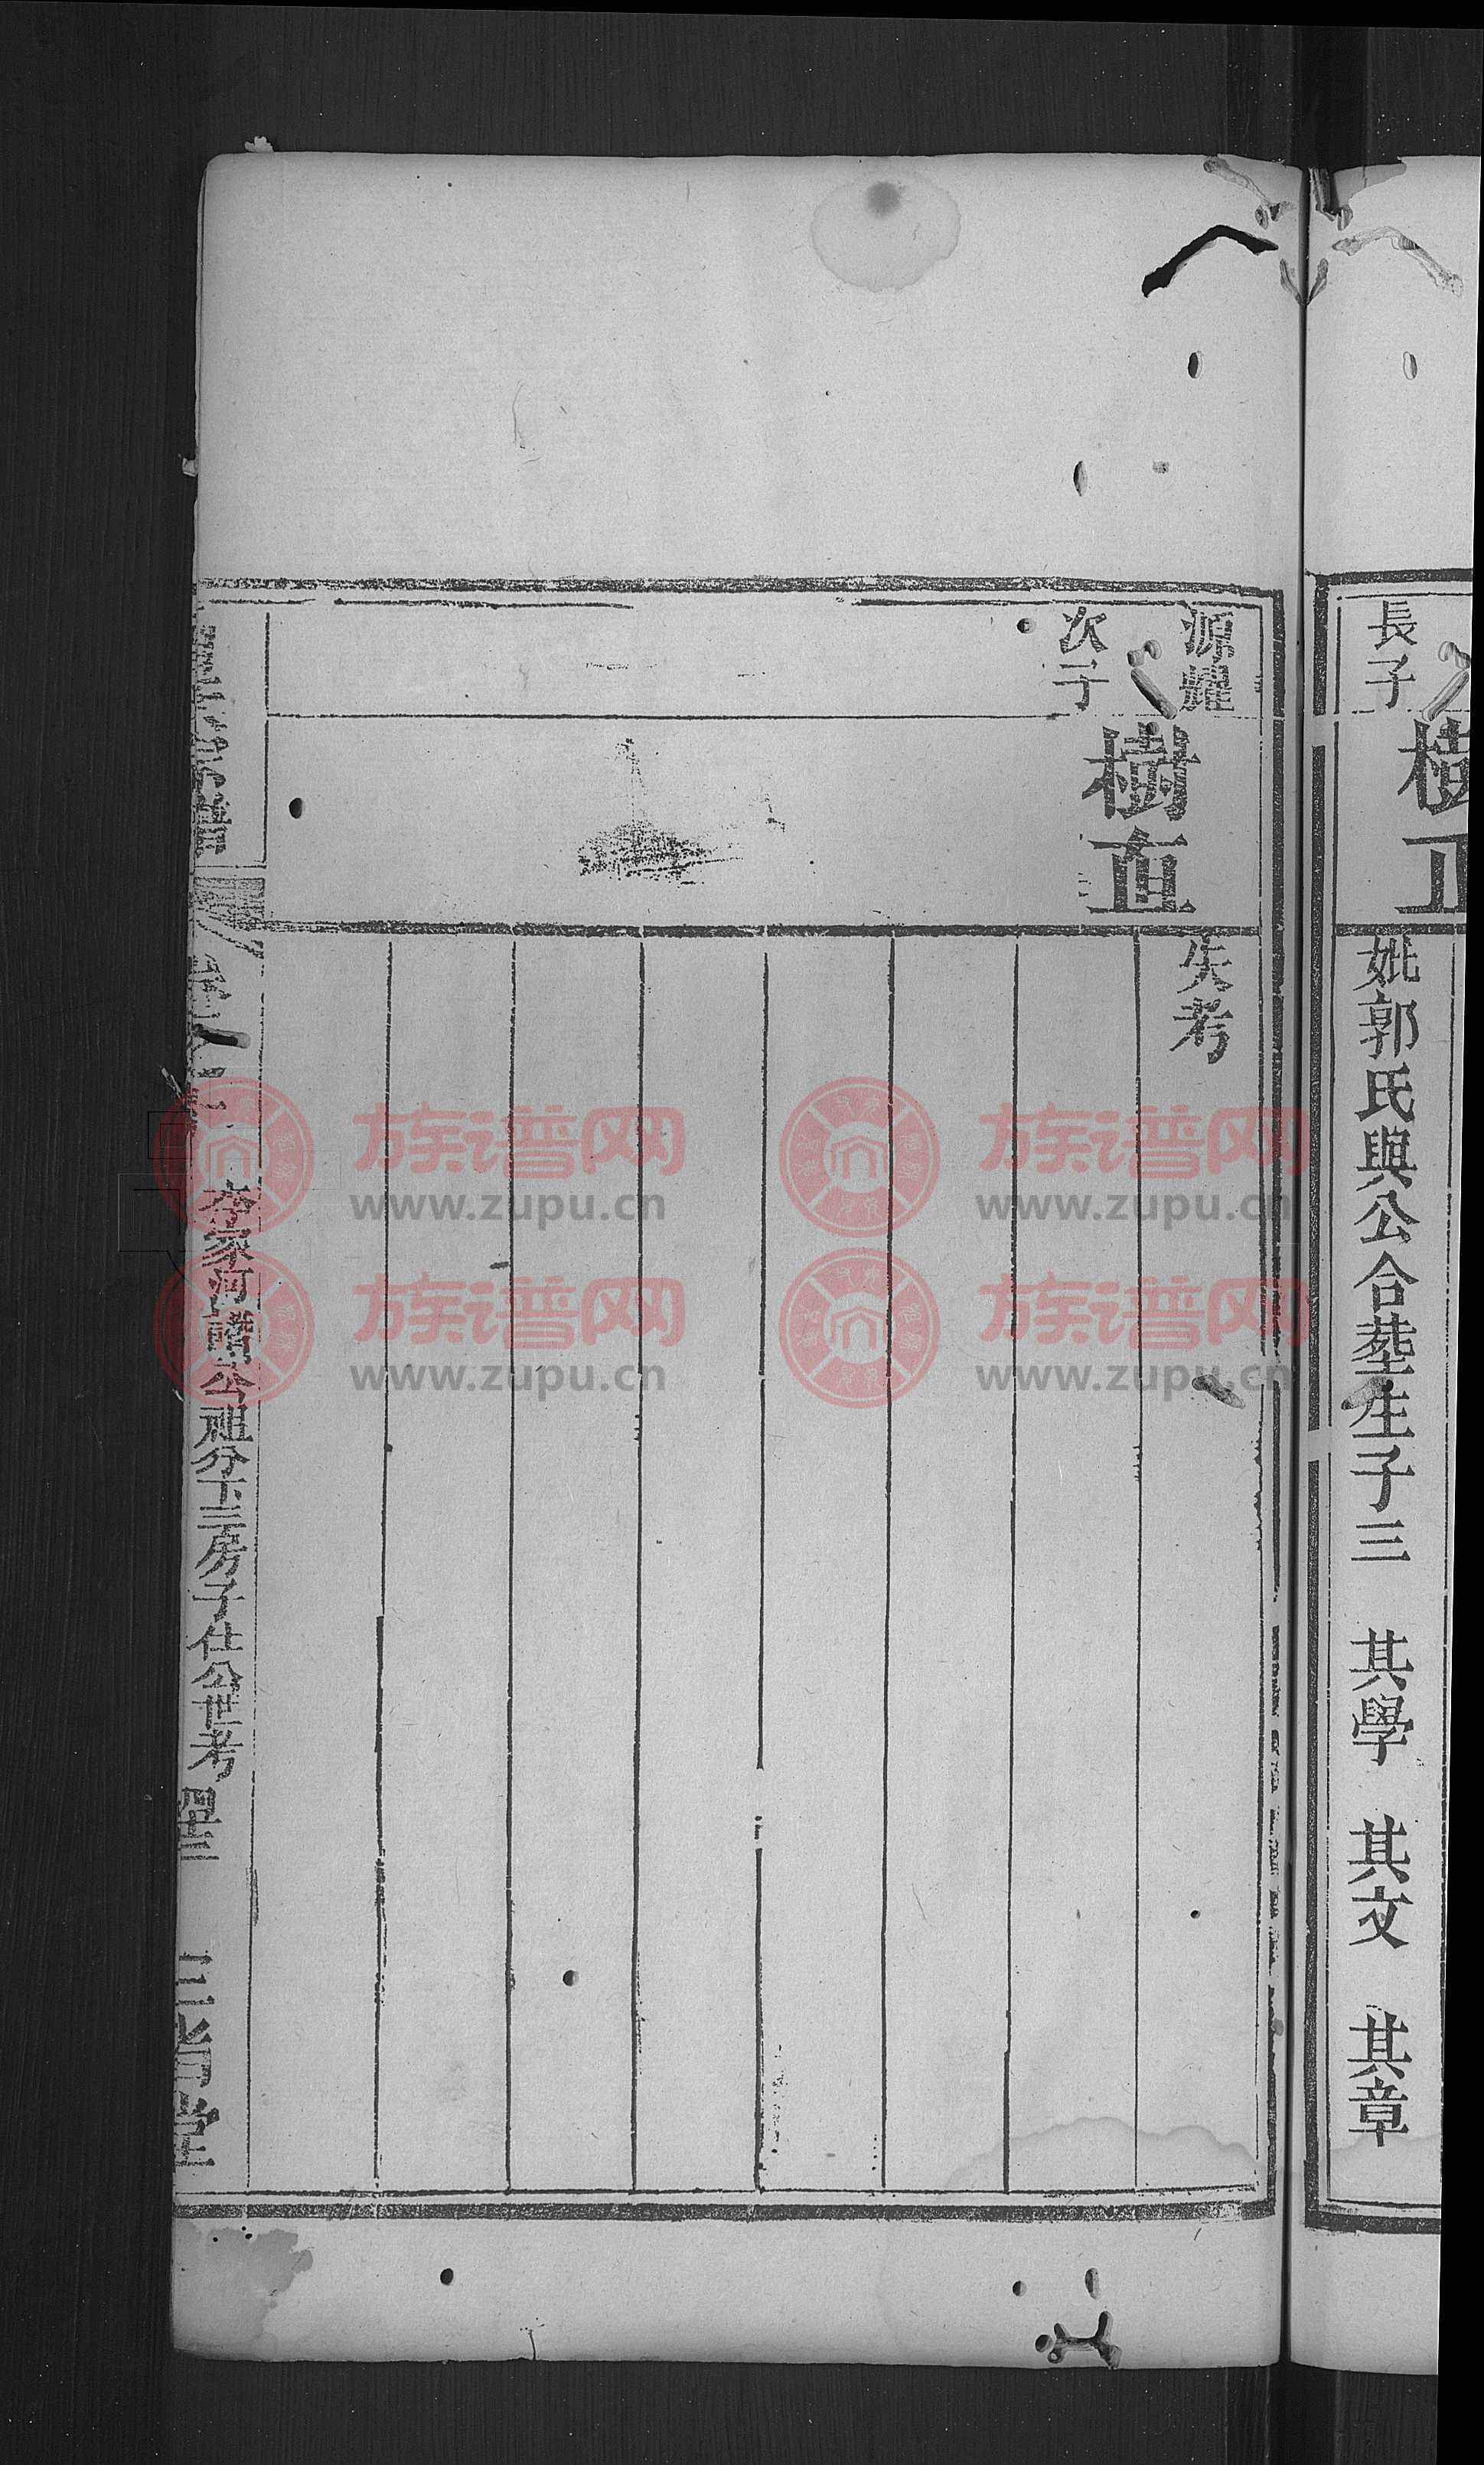 長子
樹正
妣郭氏與公合塟生子三　其學　其文　其章
源耀
次子
樹直
失考
李家河禮公祖分下三房子仕公世考
三省堂
族谱网
www.zupu.cn
族谱网
www.zupu.cn
族谱网
www.zupu.cn
族谱网
www.zupu.cn